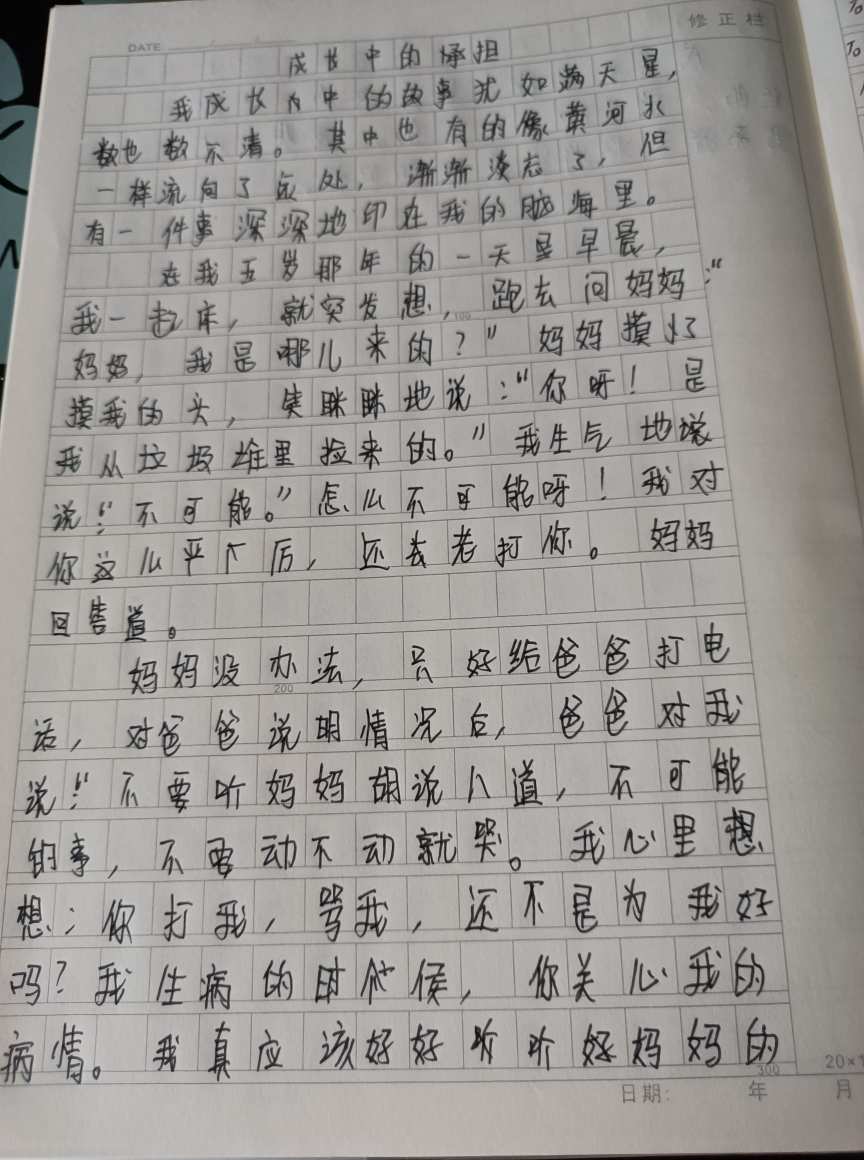 修正栏
DATE
成长中的承担
我成长中的故事犹如满天星，
数也数不清。其中也有的像黄河水
一样流向了远处，渐渐淡忘了，但
有一件事深深地印在我的脑海里。
在我五岁那年的一天早晨，
我一起床，就突发想，跑去问妈妈：“
100
妈妈，我是哪儿来的？”妈妈摸
摸我的头，笑眯眯地说：“你呀！是
我从垃圾堆里捡来的。”我生气地
说：“不可能。”怎么不可能呀！我对
你这么严厉，还老打你。妈妈
回答道。
妈妈没办法，只好给爸爸打电
200
话，对爸爸说明情况后，爸爸对我
说：“不要听妈妈胡说八道，不可能
的事，不要动不动就哭。我心里想
想：你打我，骂我，还不是为我好
吗？我生病的时候，你关心我的
病情。我真应该好好听听好妈妈的
300
20×1
日期： 年 月